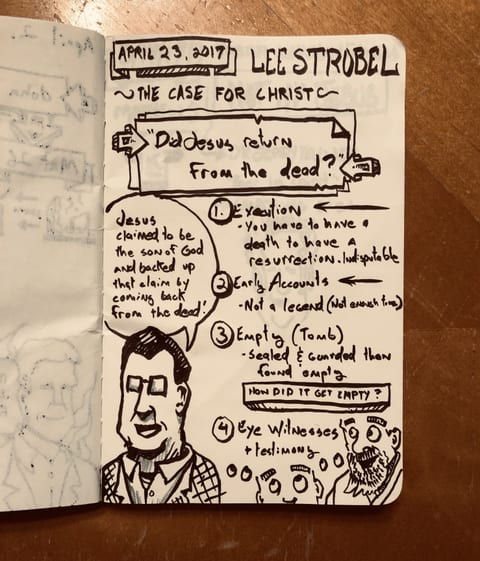 APRIL 23, 2017
LEE STROBEL
~THE CASE FOR CHRIST~
"Did Jesus return
From the dead?"
Jesus
claimed to be
the son of God
and backed up
that claim by
coming back
from the dead!
1. Execution
- You have to have a
death to have a
resurrection. Indisputable
2 Early Accounts
- Not a legend (Not enough time)
3 Empty (Tomb)
- Sealed & guarded then
found empty
HOW DID IT GET EMPTY?
4 Eye Witnesses
+ testimony